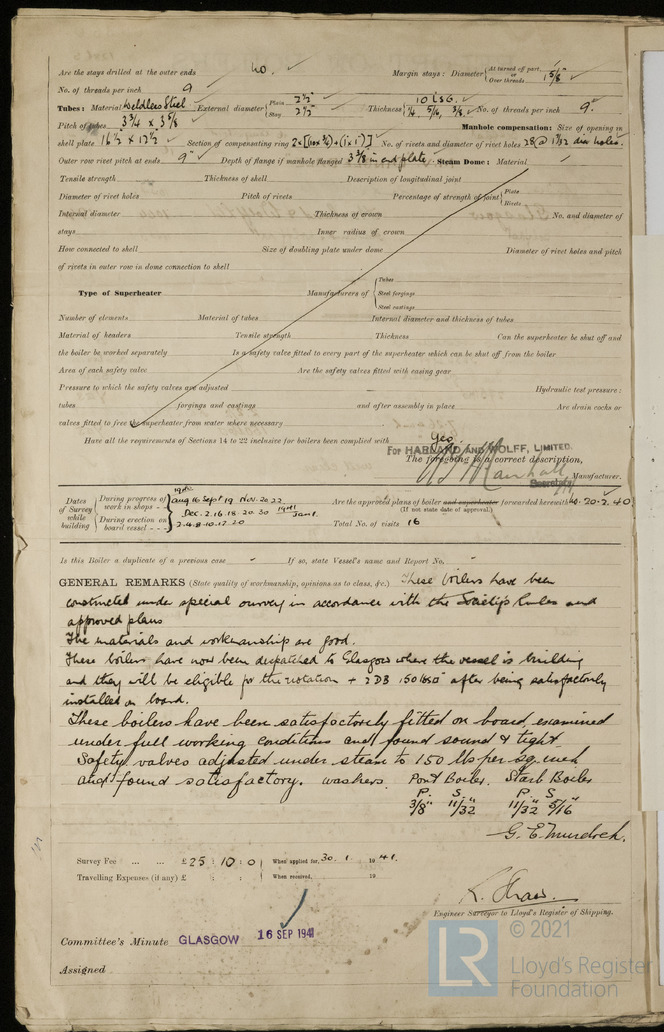 Are the stays drilled at the outer ends No. Margin stays: Diameter { At turned off part, or Over threads 1 5/8"
No. of threads per inch 9
Tubes: Material Weldless Steel External diameter { Plain 2½" Stay 2½" Thickness { 10 LSG. ¼, 5/16, 3/8 No. of threads per inch 9.
Pitch of tubes 3¾ x 3 5/8 Manhole compensation: Size of opening in
shell plate 16½" x 17½" Section of compensating ring No. of rivets and diameter of rivet holes 28 @ 1 7/32 dia holes.
Outer row rivet pitch at ends 9" Depth of flange if manhole flanged 3 3/8 in end plate. Steam Dome: Material
Tensile strength Thickness of shell Description of longitudinal joint
Diameter of rivet holes Pitch of rivets Percentage of strength of joint { Plate Rivets
Internal diameter Thickness of crown No. and diameter of
stays Inner radius of crown
How connected to shell Size of doubling plate under dome Diameter of rivet holes and pitch
of rivets in outer row in dome connection to shell
Type of Superheater Manufacturers of { Tubes Steel forgings Steel castings
Number of elements Material of tubes Internal diameter and thickness of tubes
Material of headers Tensile strength Thickness Can the superheater be shut off and
the boiler be worked separately Is a safety valve fitted to every part of the superheater which can be shut off from the boiler
Area of each safety valve Are the safety valves fitted with easing gear
Pressure to which the safety valves are adjusted Hydraulic test pressure:
tubes forgings and castings and after assembly in place Are drain cocks or
valves fitted to free the superheater from water where necessary
Have all the requirements of Sections 14 to 22 inclusive for boilers been complied with Yes
For HARLAND AND WOLFF, LIMITED.
The foregoing is a correct description,
Manufacturer.
Secretary
Dates of Survey while building { During progress of work in shops - - 1940 Aug 16 Sept 19 Nov. 20 22 Dec. 2. 16. 18. 20. 30 1941 Jan 1.
Are the approved plans of boiler and superheater forwarded herewith 20.2.40
(If not state date of approval.)
During erection on board vessel - - - 2.4.8.10.12.20 Total No. of visits 16
Is this Boiler a duplicate of a previous case If so, state Vessel's name and Report No.
GENERAL REMARKS (State quality of workmanship, opinions as to class, &c.) These boilers have been
constructed under special survey in accordance with the Society's Rules and
approved plans
The materials and workmanship are good.
These boilers have now been despatched to Glasgow where the vessel is building
and they will be eligible for the notation + 2DB 150 lbs after being satisfactorily
installed on board.
These boilers have been satisfactorily fitted on board, examined
under full working conditions and found sound & tight.
Safety valves adjusted under steam to 150 lbs per sq. inch
and found satisfactory. washers. Port Boiler. Starb Boiler
P. S. P. S.
3/8" 11/32" 11/32 5/16"
G. E. Murdoch.
Survey Fee ... ... £ 25 : 10 : 0 When applied for, 30. 1. 1941.
Travelling Expenses (if any) £ : : When received, 19
R. Shaw.
Engineer Surveyor to Lloyd's Register of Shipping.
Committee's Minute GLASGOW 16 SEP 1941
Assigned
© 2021
LR Lloyd's Register
Foundation